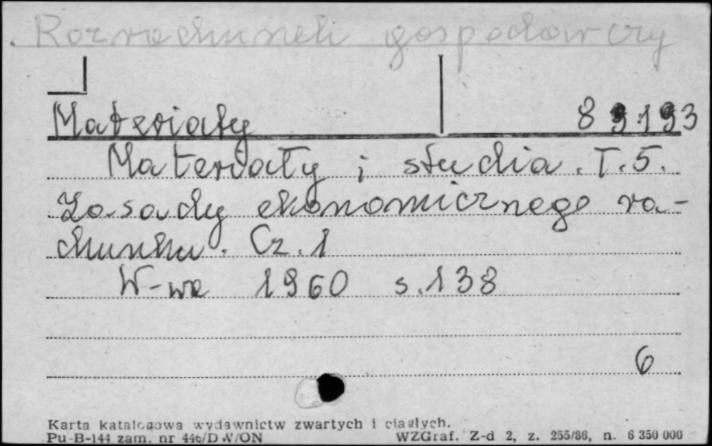 Rozrachunek gospodarczy
Materiały 89193
Materiały i studia. T. 5.
Zasady ekonomicznego ra-
chunku. Cz. 1
W-wa 1960 s. 138
6
Karta katalogowa wydawnictw zwartych i ciągłych.
Pu-B-144 zam. nr 446/DW/ON WZGraf. Z-d 2, z. 255/86, n. 6 350 000